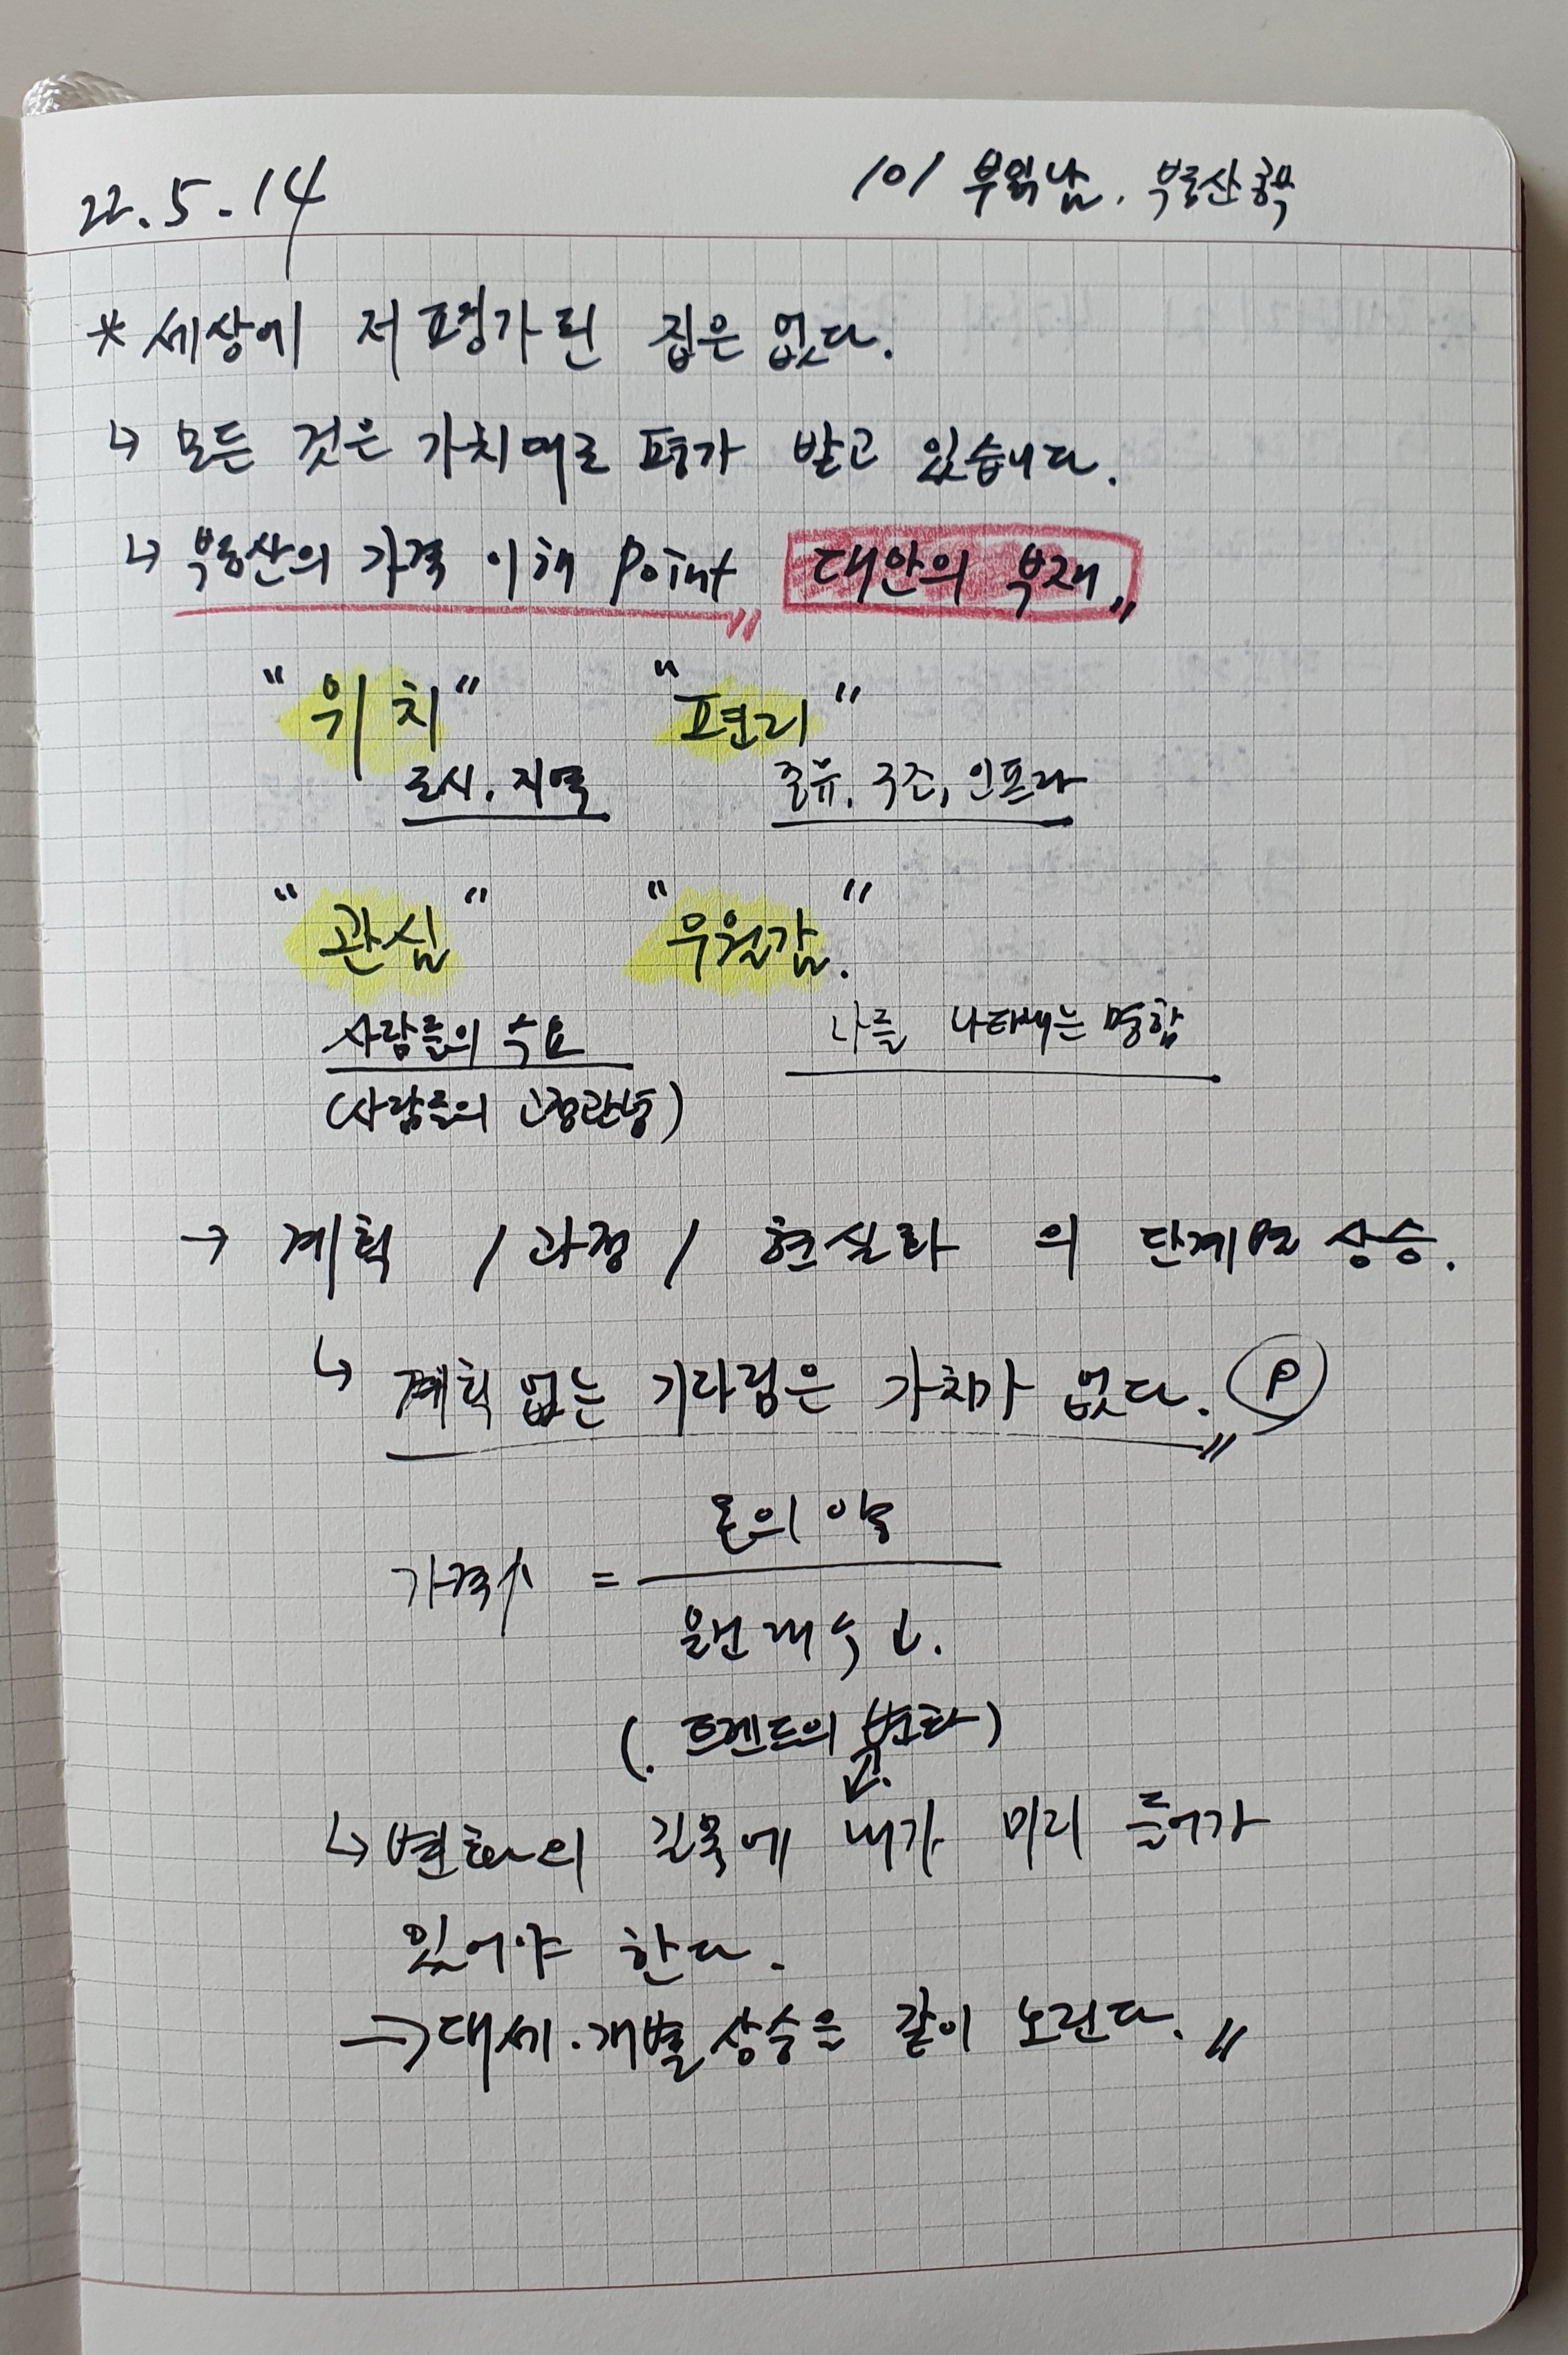 22.5.14
101 부읽남. 부동산
* 세상에 저평가된 집은 없다.
↳ 모든 것은 가치대로 평가 받고 있습니다.
↳ 부동산의 가격 이해 point 대안의 부재〃
"위치" "편리"
도시. 지역 종류. 구조, 인프라
"관심" "우월감."
사람들의 수요 나를 나타내는 명함
(사람들의 고정관념)
→ 계획 / 과정 / 현실화 의 단계별 상승.
↳ 계획 없는 기다림은 가치가 없다.〃 P
가격↑ = 돈의 양
원래수↓.
(. 트렌드의 변화)
↳ 변화의 길목에 내가 미리 들어가
있어야 한다.
⇒ 대세.개별 상승을 같이 노린다.〃